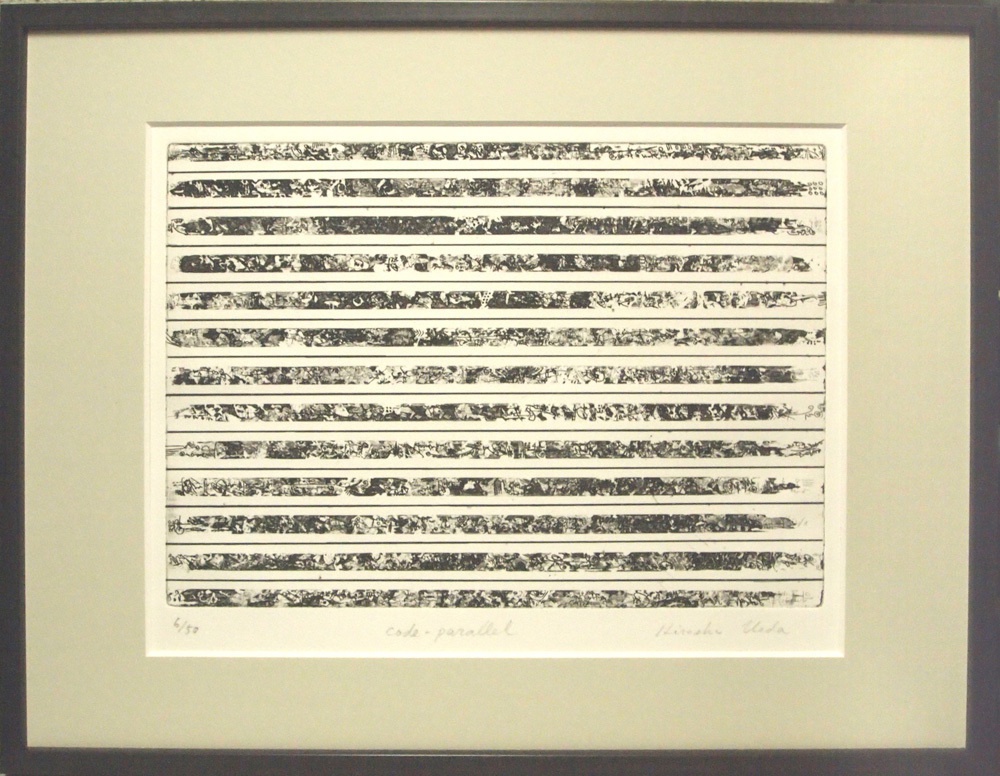 6/50 code-parallel Hiroshi Ueda